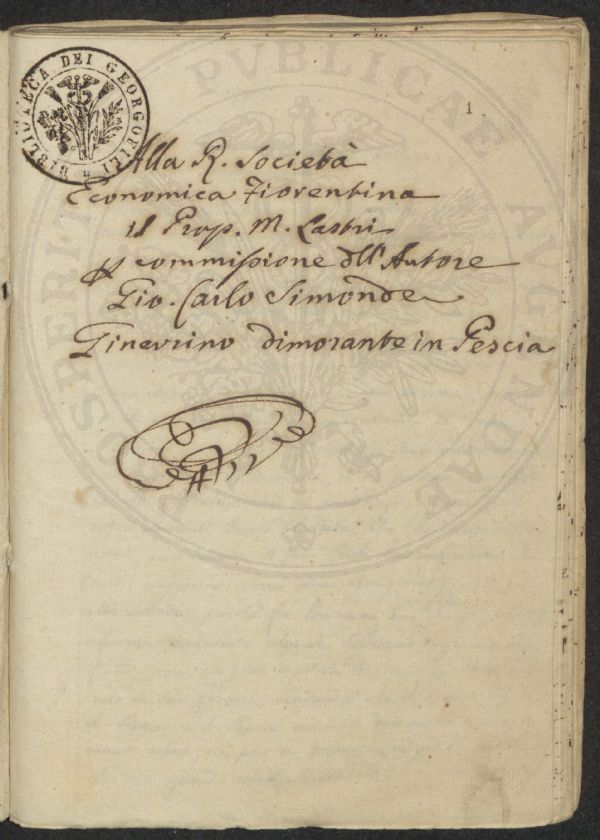 BIBLIOTECA DEI GEORGOFILI
PROSPERITATI PVBLICAE AVGENDAE
1
Alla R. Società
Economica Fiorentina
il Prop. M. Lastri
commissione dll'Autore
Gio. Carlo Simonde
Ginevrino dimorante in Pescia